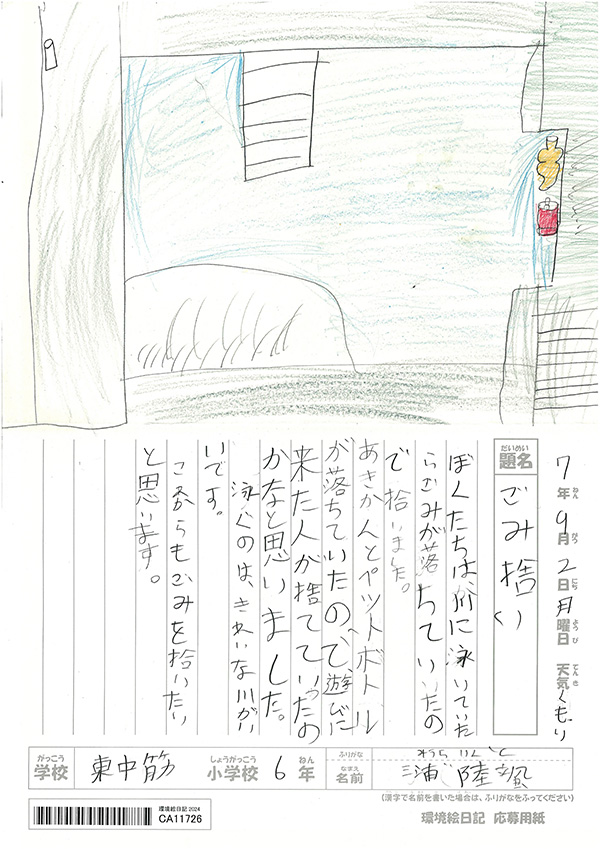 7年9月2日月曜日 天気くもり
だいめい
題名
ごみ捨い
ぼくたちは、川に泳いていた
らごみが落ちていたの
で拾いました。
あきかんとペットボトル
が落ちていたので、遊びに
来た人が捨てていったの
かなと思いました。
泳ぐのは、きれいな川がい
いです。
これからもごみを拾いたい
と思います。
がっこう しょうがっこう ねん ふりがな
学校 東中筋 小学校 6年 なまえ 名前 浦 陸颯
(漢字で名前を書いた場合は、ふりがなをふってください)
環境絵日記 2024
CA11726
環境絵日記 応募用紙